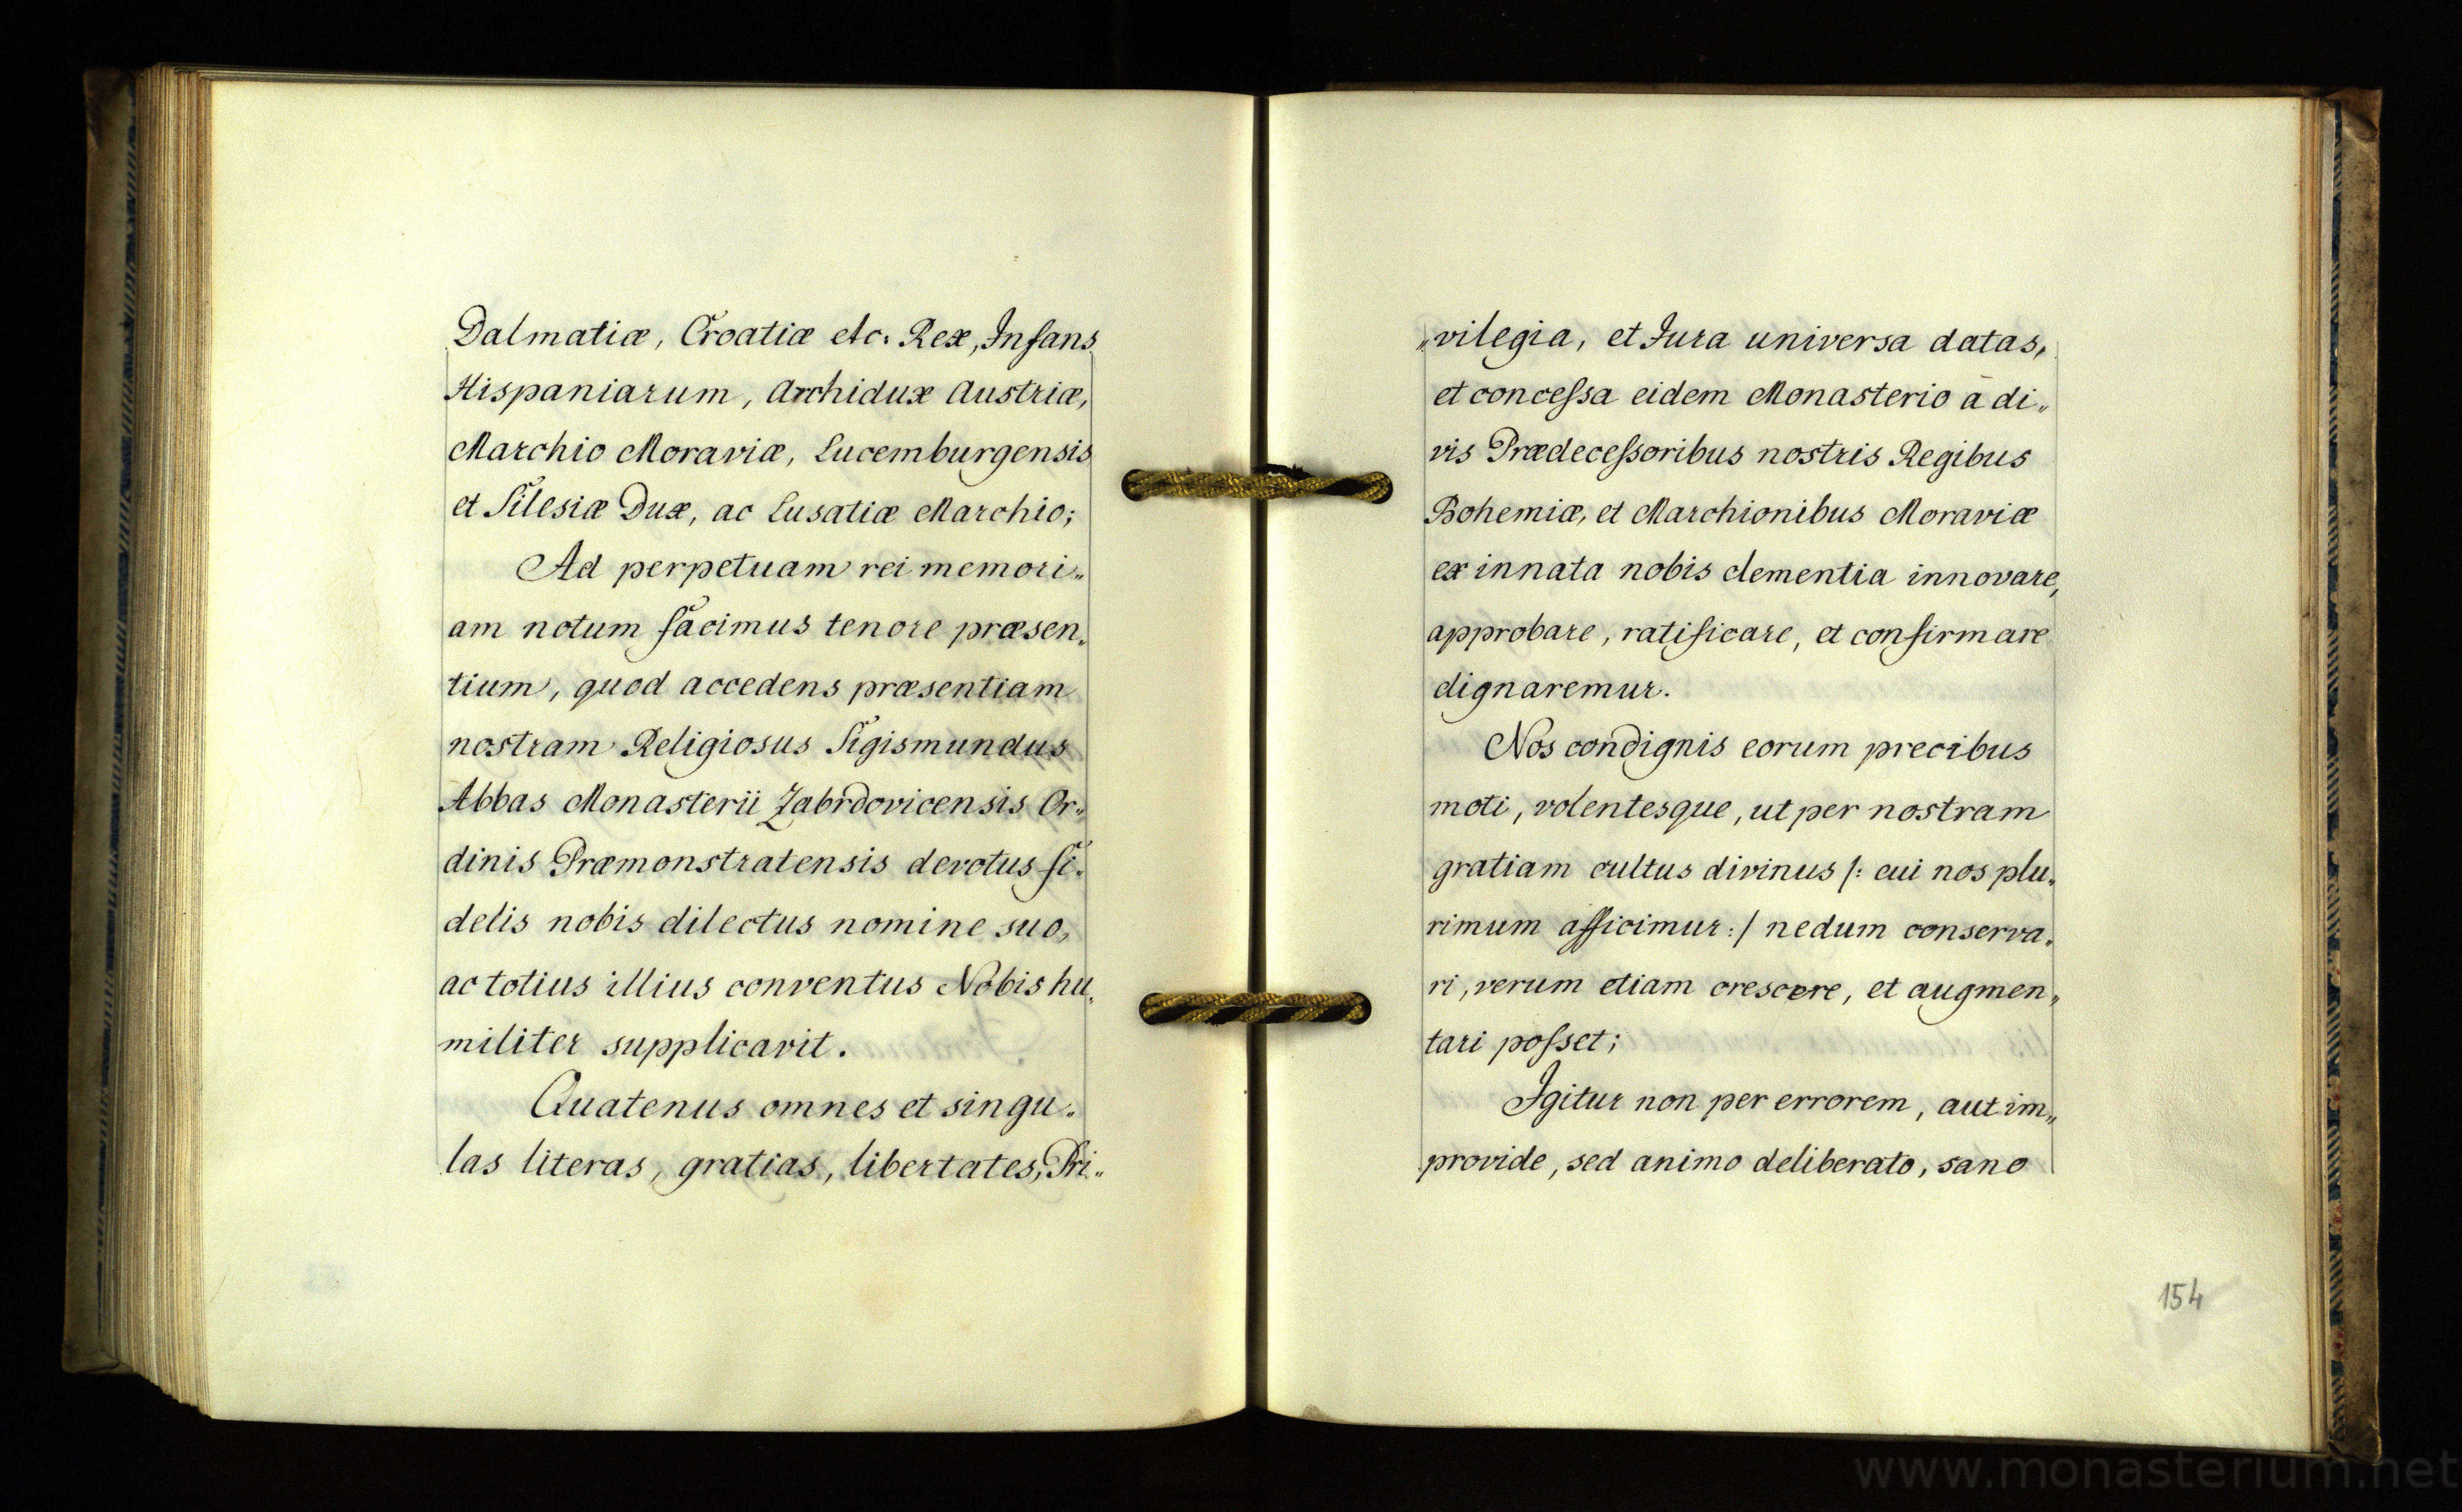 Dalmatiæ, Croatiæ etc. Rex, Infans
Hispaniarum, Archidux Austriæ,
Marchio Moraviæ, Lucemburgensis
et Silesiæ Dux, ac Lusatiæ Marchio;
Ad perpetuam rei memori„
am notum facimus tenore præsen„
tium, quod accedens præsentiam
nostram Religiosus Sigismundus
Abbas Monasterii Zabrdovicensis Or„
dinis Præmonstratensis devotus fi„
delis nobis dilectus nomine suo,
ac totius illius conventus Nobis hu„
militer supplicavit.
Quatenus omnes et singu„
las literas, gratias, libertates, Pri„
„vilegia, et Jura universa datas,
et conceſsa eidem Monasterio à di„
vis Prædeceſsoribus nostris Regibus
Bohemiæ, et Marchionibus Moraviæ
ex innata nobis clementia innovare,
approbare, ratificare, et confirmare
dignaremur.
Nos condignis eorum precibus
moti, volentesque, ut per nostram
gratiam cultus divinus /: cui nos plu„
rimum afficimur :/ nedum conserva„
ri, verum etiam crescere, et augmen„
tari poſset;
Igitur non per errorem, aut im„
provide, sed animo deliberato, sano
154
www.monasterium.net